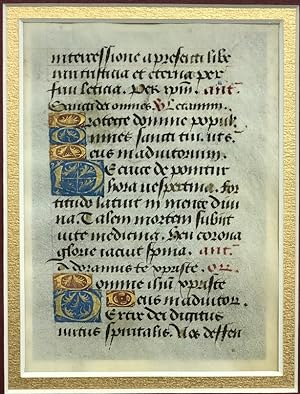 intercessione a presenti libe
rari tristitia et eterna per
frui leticia. Per xpm. ant.
Sancti dei omnes. v. Letamini.
Protege domine popul.
Omnes sancti tui. uts.
Deus in adiutorium.
De cruce deponitur
hora uespertina. For
titudo latuit in mente diui
na. Talem mortem subiit
uite medicina. Heu corona
glorie iacuit supina. ant.
Adoramus te xpriste. Or.
Domine ihu xpriste
Deus in adiutor.
Extre dei digitus
uirtus spiritalis. Nos deffen